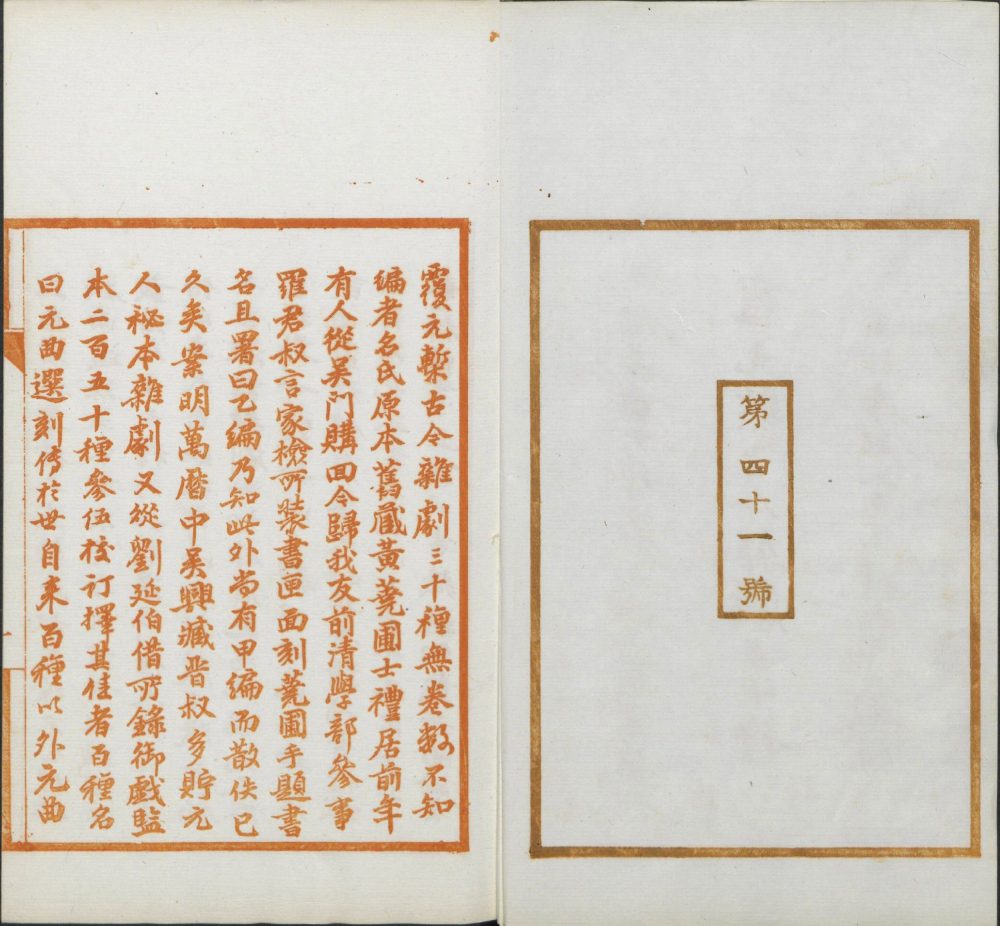 第四十一號
覆元槧古今雜劇三十種無卷數不知
編者名氏原本舊藏黃蕘圃士禮居前年
有人從吳門購回今歸我友前清學部參事
羅君叔言家檢所裝書匣面刻蕘圃手題書
名且署曰乙編乃知此外尚有甲編而散佚已
久矣案明萬曆中吳興臧晉叔多貯元
人秘本雜劇又從劉延伯借所錄御戲監
本二百五十種參伍校訂擇其佳者百種名
曰元曲選刻傳於世自來百種以外元曲